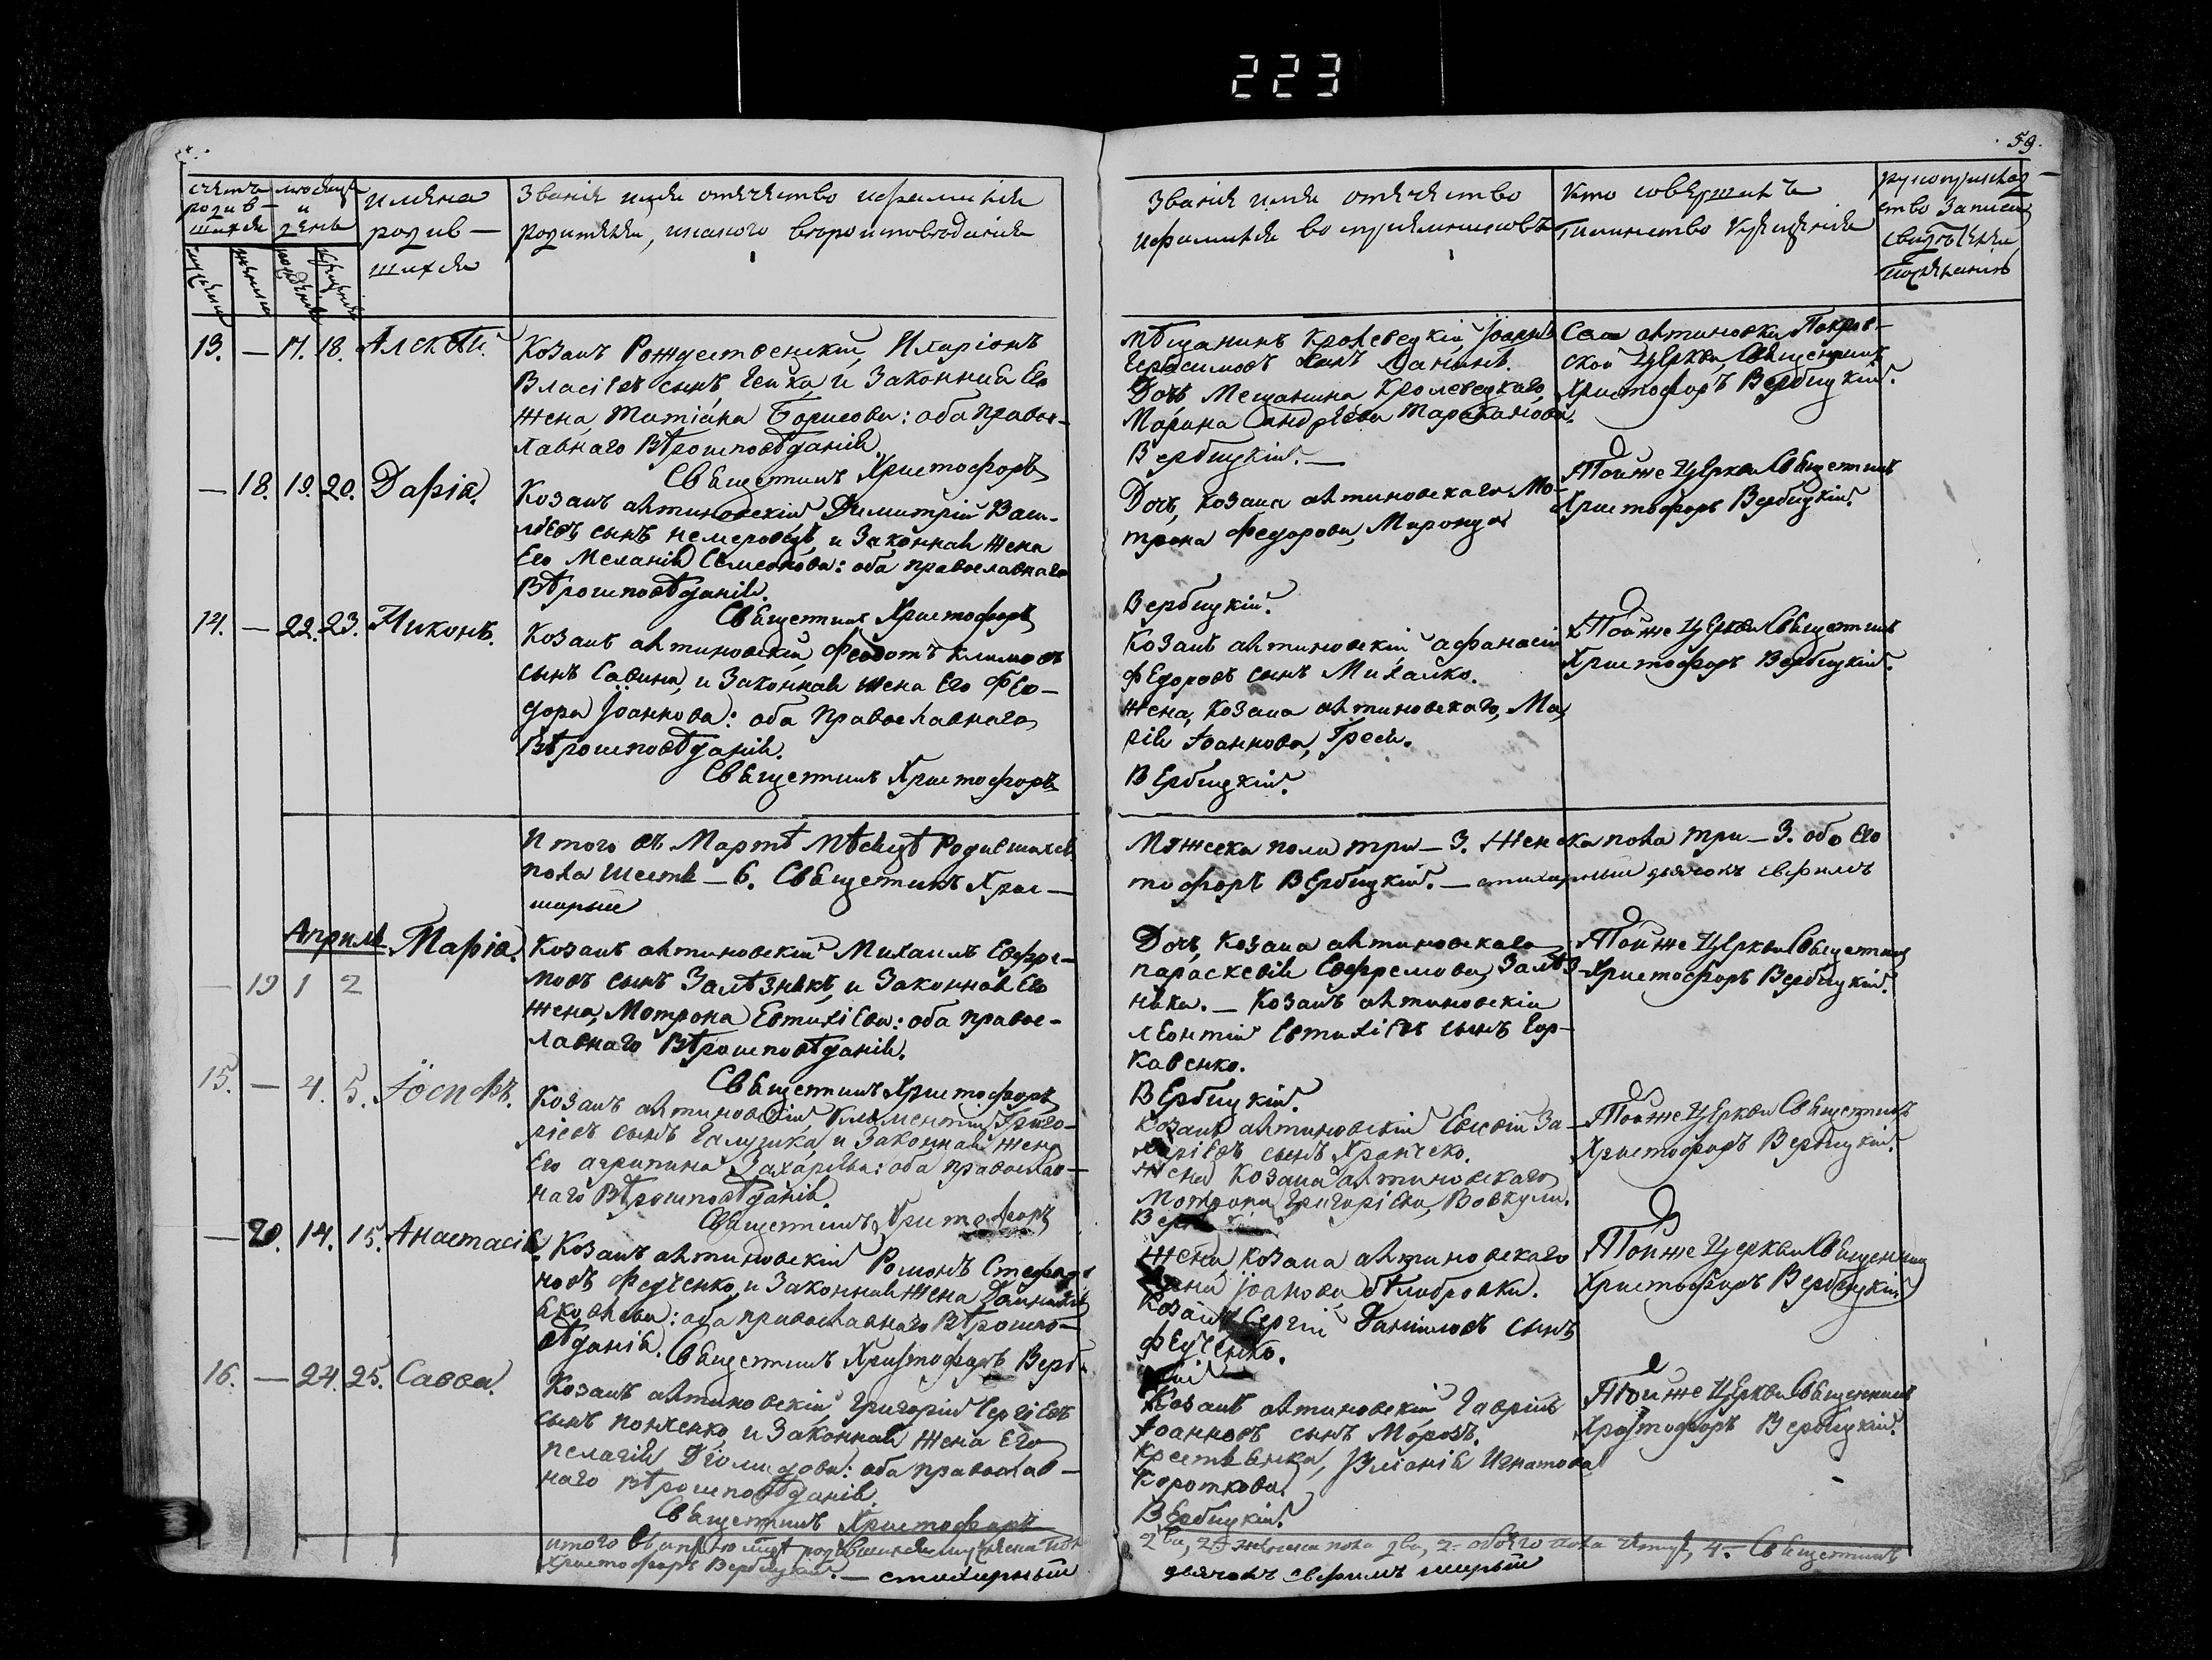 223
59.
счетъ родив-шихся
месяцъ и день
имена родив-шихся
Званіе имя отечество и фамилія
родителей, и какого вероисповеданія
Званіе имя отечество
и фамилія воспріемниковъ
Кто совершилъ
таинство крещенія
рукоприкладство записи
свидетелей
по желанію
13. — 17. 18. Алексѣй.
Козакъ Рождественскій, Иларіонъ
Власіевъ сынъ и Законная Его
жена, Татіана Борисова: оба Правос-
лавнаго Вѣроисповѣданія.
Священникъ Христофоръ
мѣщанинъ Кролевецкій, Іоаннъ
Герасимовъ сынъ
Дочь Мещанина Кролевецкаго,
Марина Андреева Тараканова.
Вербицкій. —
Села Алтиновки Покров-
ской Церкви, Священникъ
Христофоръ Вербицкій.
— 18. 19. 20. Дарія.
Козакъ Алтиновскій Димитрій Васи-
льевъ сынъ и Законная жена
Его Меланія Семенова: оба православнаго
Вѣроисповѣданія.
Священникъ Христофоръ
Дочь, Козака Алтиновскаго Мо-
трона Федорова,
Вербицкій.
Тойже Церкви Священникъ
Христофоръ Вербицкій.
14. — 22. 23. Никонъ.
Козакъ Алтиновскій, Федотъ Климовъ
сынъ Савина, и Законная жена Его Фео-
дора Іоаннова: оба Православнаго
Вѣроисповѣданія.
Священникъ Христофоръ
Козакъ Алтиновскій Афанасій
Федоровъ сынъ Михалко.
Жена, Козака Алтиновскаго, Ма-
рія Іоаннова,
Вербицкій.
Тойже Церкви Священникъ
Христофоръ Вербицкій.
Итого въ Мартѣ Мѣсяцѣ Родившихся
Мужеска пола три — 3. Женска пола три — 3. обоего
пола шесть — 6. Священникъ Хрис-
тофоръ Вербицкій. — стихарный дьячокъ Ефимъ
Апрель
— 19 1 2
Марія.
Козакъ Алтиновскій Михаилъ Евфре-
мовъ сынъ Залѣзнякъ, и Законная Его
Жена, Мотрона Евтихіева: оба правос-
лавнаго Вѣроисповѣданія.
Священникъ Христофоръ
Дочь, Козака Алтиновскаго
Параскевія Евфремова, Залѣз-
няка. — Козакъ Алтиновскій
Леонтій Евтихіевъ сынъ
Вербицкій.
Тойже Церкви Священникъ
Христофоръ Вербицкій.
15. — 4. 5. Іосифъ.
Козакъ Алтиновскій, Климентій Григо-
ріевъ сынъ Галушка, и Законная жена
Его Агрипина Захаріева: оба православ-
наго Вѣроисповѣданія.
Священникъ Христофоръ
Козакъ Алтиновскій
сынъ
Жена Козака Алтиновскаго
Мотрона Григоріева,
Тойже Церкви Священникъ
Христофоръ Вербицкій.
— 20. 14. 15. Анастасія
Козакъ Алтиновскій Романъ Стефа-
новъ Федченко, и Законная Жена
оба православнаго Вѣроиспо-
вѣданія. Священникъ Христофоръ
Жена козака Алтиновскаго
Козакъ Сергій Даніиловъ сынъ
Федченко.
Тойже Церкви Священникъ
Христофоръ Вербицкій
16. — 24. 25. Савва.
Козакъ Алтиновскій Григорій Сергіевъ
сынъ и Законная жена Его
Пелагія Діомидова: оба Православ-
наго Вѣроисповѣданія.
Священникъ Христофоръ
Козакъ Алтиновскій Гавріилъ
Іоанновъ сынъ Морозъ.
Крестьянка, Игнатова
Короткова.
Вербицкій.
Тойже Церкви Священникъ
Христофоръ Вербицкій.
итого
два, 2. женска пола два, 2. обоего пола 4. — Священникъ
Христофоръ Вербицкій. — стихарный
дьячокъ Ефимъ